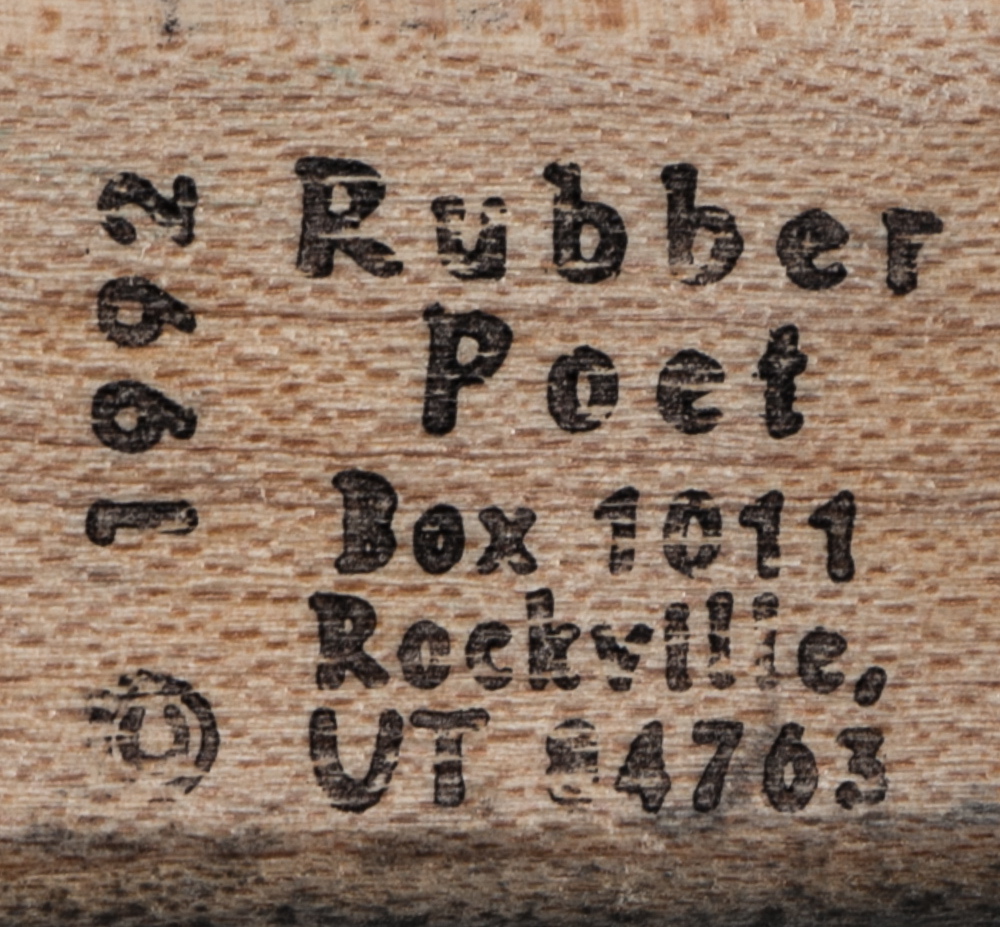 © 1992
Rubber
Poet
Box 1011
Rockville,
UT 84763